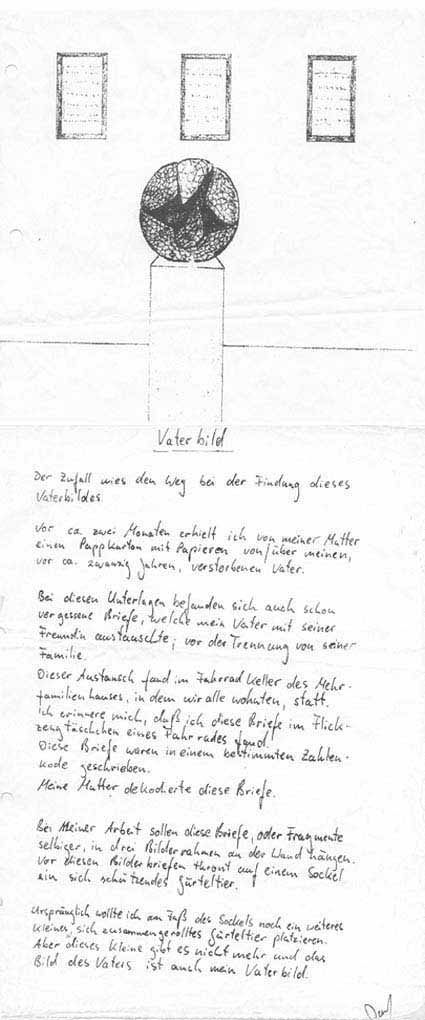 Vaterbild
Der Zufall wies den Weg bei der Findung dieses
Vaterbildes
Vor ca. zwei Monaten erhielt ich von meiner Mutter
einen Pappkarton mit Papieren von/über meinen,
vor ca. zwanzig Jahren, verstorbenen Vater.
Bei diesen Unterlagen befanden sich auch schon
vergessene Briefe, welche mein Vater mit seiner
Freundin austauschte; vor der Trennung von seiner
Familie.
Dieser Austausch fand im Fahrradkeller des Mehr-
familienhauses, in dem wir alle wohnten, statt.
Ich erinnere mich, daß ich diese Briefe im Flick-
zeugtäschchen eines Fahrrades fand.
Diese Briefe waren in einem bestimmten Zahlen-
kode geschrieben.
Meine Mutter dekodierte diese Briefe.
Bei Meiner Arbeit sollen diese Briefe, oder Fragmente
selbiger, in drei Bilderrahmen an der Wand hängen.
Vor diesen Bilderbriefen thront auf einem Sockel
ein sich schützendes Gürteltier.
Ursprünglich wollte ich am Fuß des Sockels noch ein weiteres
kleines, sich zusammengerolltes Gürteltier platzieren.
Aber dieses Kleine gibt es nicht mehr und das
Bild des Vaters ist auch mein Vaterbild.